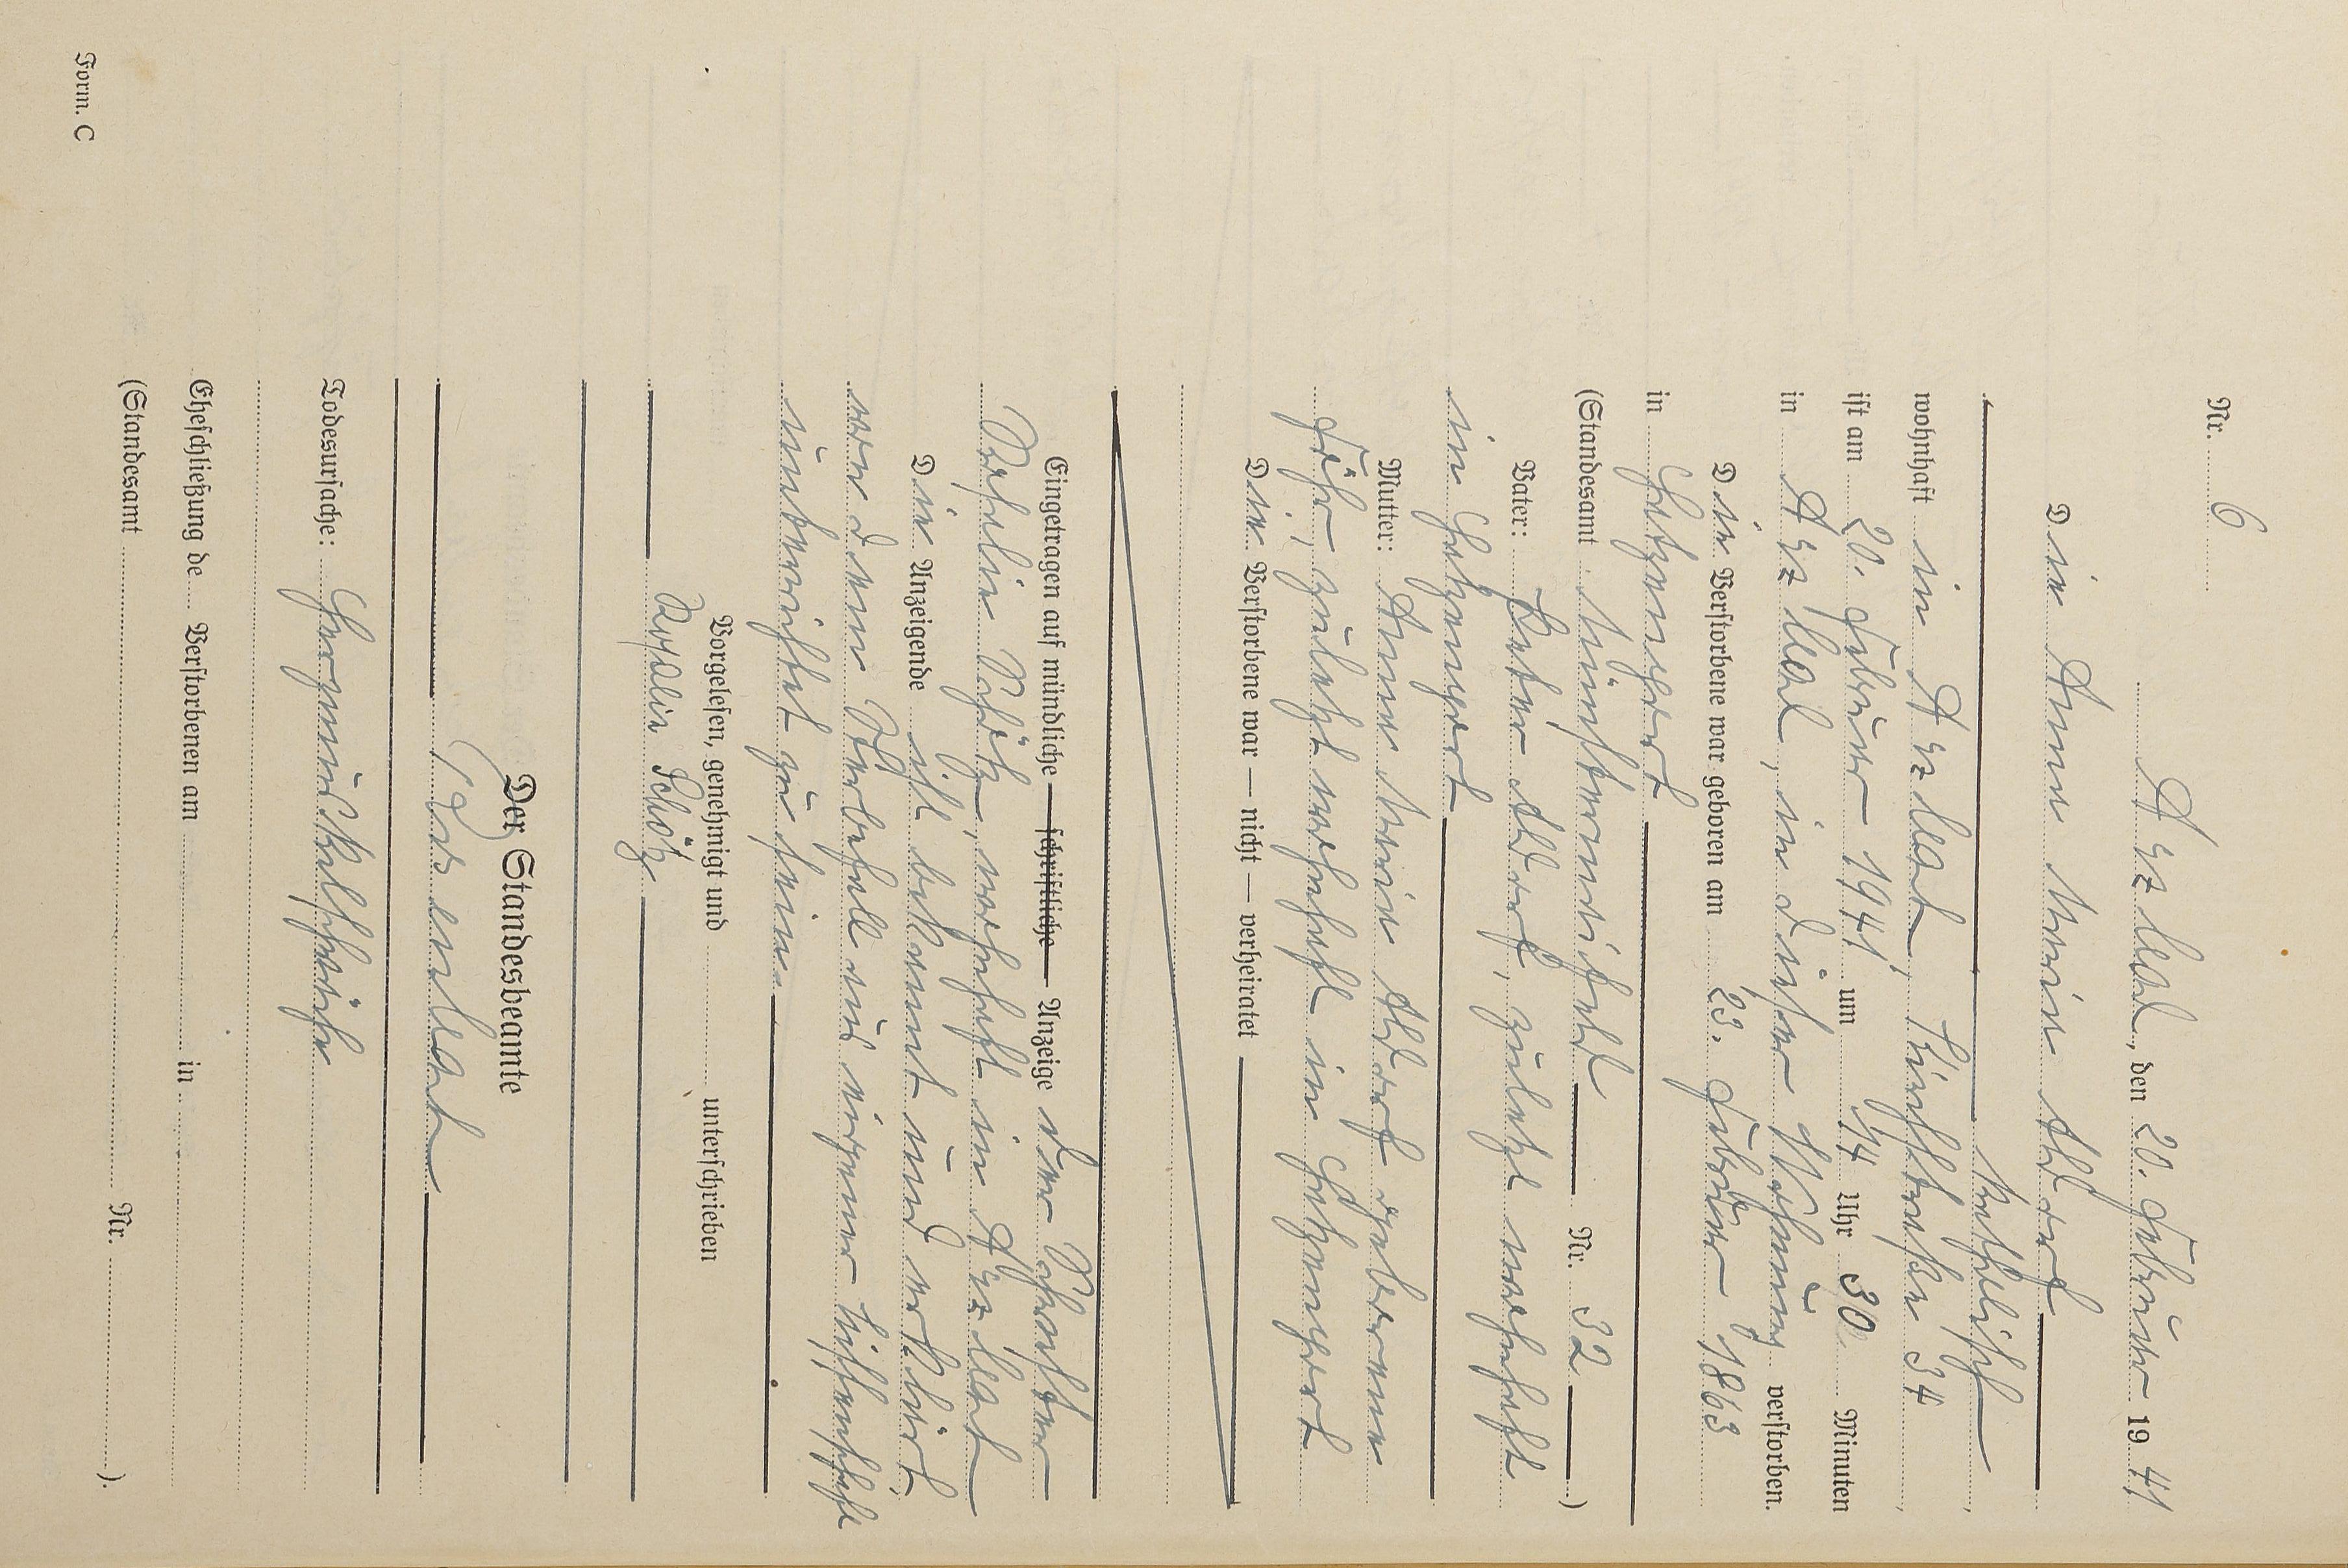 Nr. 6
Arzbach, den 20. Februar 1941
Die Anna Maria Alberg
katholisch
wohnhaft in Arzbach, Kirchstraße 34
ist am 20. Februar 1941 um 14 Uhr 30 Minuten
in Arzbach, in dieser Wohnung verstorben.
Die Verstorbene war geboren am 23. Februar 1863
in
(Standesamt Nr. 32)
Vater: Peter, zuletzt wohnhaft
in
Mutter: Anna Maria geborene
zuletzt wohnhaft in
Die Verstorbene war — nicht — verheiratet
Eingetragen auf mündliche — schriftliche — Anzeige der
Rosalie Schötz, wohnhaft in Arzbach
Die Anzeigende ist bekannt und erklärt,
von dem Sterbefall aus eigener Wissenschaft
unterrichtet zu sein.
Vorgelesen, genehmigt und unterschrieben
Rosalie Schötz
Der Standesbeamte
Todesursache: Herzmuskelschwäche
Eheschließung de Verstorbenen am in
(Standesamt Nr. ).
Form. C